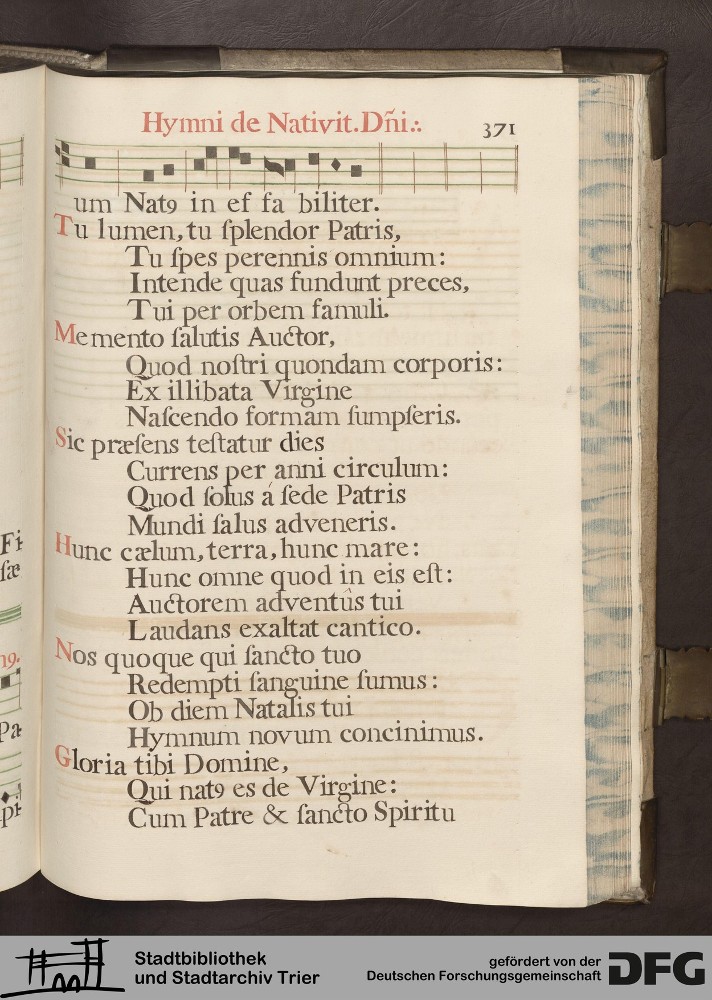 Hymni de Nativit. Dñi.:.
371
um Natꝯ in ef fa biliter.
Tu lumen, tu ſplendor Patris,
Tu ſpes perennis omnium:
Intende quas fundunt preces,
Tui per orbem famuli.
Memento ſalutis Auctor,
Quod noſtri quondam corporis:
Ex illibata Virgine
Naſcendo formam ſumpſeris.
Sic præſens teſtatur dies
Currens per anni circulum:
Quod ſolus á ſede Patris
Mundi ſalus adveneris.
Hunc cælum, terra, hunc mare:
Hunc omne quod in eis eſt:
Auctorem adventûs tui
Laudans exaltat cantico.
Nos quoque qui ſancto tuo
Redempti ſanguine ſumus:
Ob diem Natalis tui
Hymnum novum concinimus.
Gloria tibi Domine,
Qui natꝯ es de Virgine:
Cum Patre & ſancto Spiritu
Stadtbibliothek
und Stadtarchiv Trier
gefördert von der
Deutschen Forschungsgemeinschaft
DFG